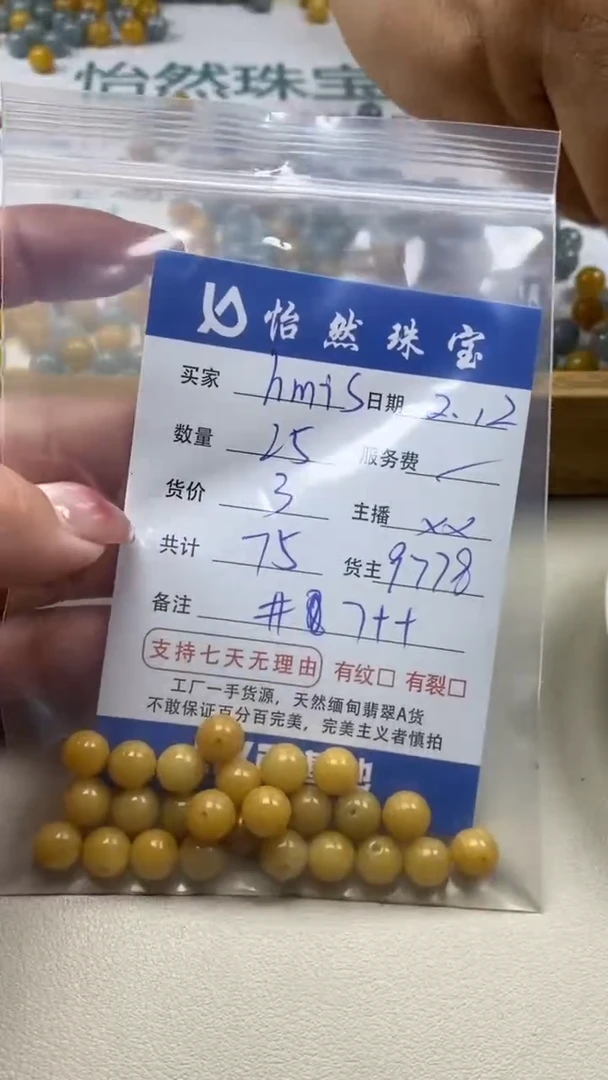 怡然珠宝
怡然珠宝
买家 hmis 日期 2.12
数量 25 服务费
货价 3 主播 xx
共计 75 货主 9778
备注 # 7++
支持七天无理由 有纹□ 有裂□
工厂一手货源，天然缅甸翡翠A货
不敢保证百分百完美，完美主义者慎拍